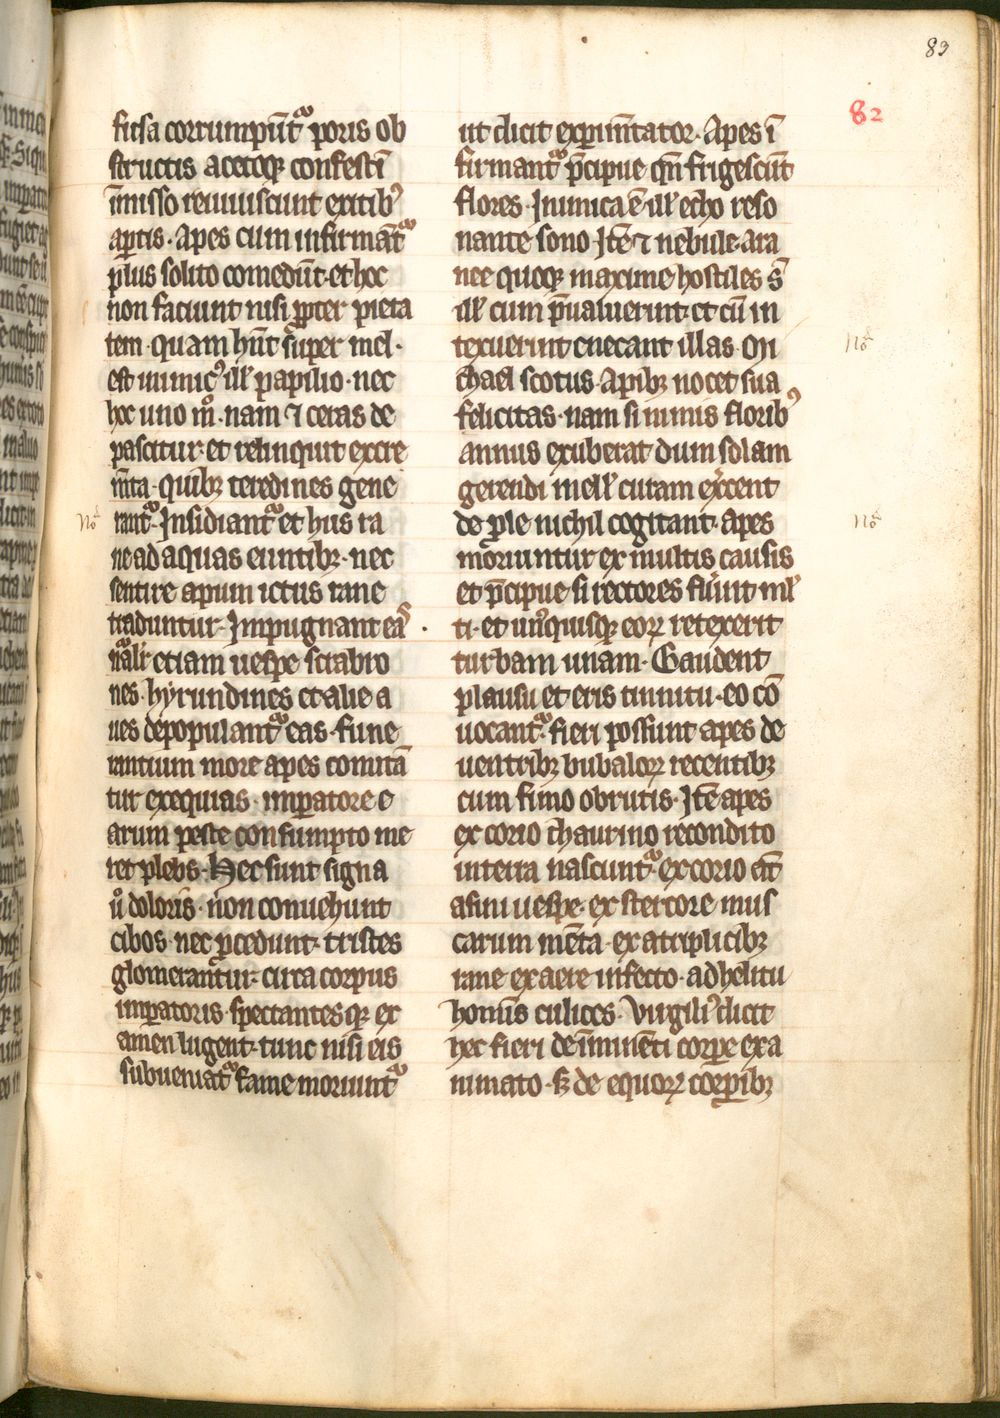 83
82
fusa corrumpūt᷑ poris ob
structis acetoqꝫ confestī
īmisso reuiuiscunt exitibꝰ
aꝑtis · Apes cum infirmāt᷑
plus solito comedūt · et hoc
non faciunt nisi ꝓpter pieta
tem · quam hn̄t suꝑer mel ·
est inimicꝰ ill̄ papilio · nec
hoc uno mͦ · nam ⁊ ceras de
pascitur · et relinquit excre
m̄ta · quibꝫ teredines gene
rant᷑ · Insidiant᷑ et hiis ra
ne ad aquas euntibꝫ · nec
sentire apum ictus rane
traduntur · Impugnant eaˢ ·
nāli etiam uespe scrabro
nes · hyrundines et alie a
ues depopulant᷑ eas · fune
rantium more apes comitā
tur exequias · imꝑatore e
arum peste consumpto me
ret plebs · Hec sunt signa
uͦ doloris · non conuehunt
cibos · nec ꝓcedunt · tristes
glomerantur · circa corpus
imꝑatoris · spectantesqꝫ ex
amen lugent · tunc nisi eis
subueniat᷑ fame moriunt᷑
ut dicit exꝑim̄tator · Apes ī
firmant᷑ p̄cipue qn̄ frigescūt
flores · Inimica ē ill̄ echo reso
nante sono Itē ⁊ nebule · ara
nee quoqꝫ maxime hostiles s̄
ill̄ cum p̄ualuerint · et cū in
texuerint enecant illas · Mi
chael scotus · Apibꝫ nocet sua
felicitas · nam si nimis floribꝰ
annus exuberat dum solam
gerendi mell̄ curam ex͛cent
de ple nichil cogitant · apes
moriuntur ex multis causis
et p̄cipue si rectores fu͛int ml̄
ti · et unꝰquisqꝫ eoꝝ retexerit
turbam unam · Gaudent
plausu et eris tinnitu · eo cō
uocant᷑ · fieri possunt apes de
uentribꝫ bubaloꝝ recentibꝫ
cum fimo obrutis · Itē apes
ex corio thaurino recondito
in terra nascunt᷑ · ex corio at̄
asini uespe · ex stercore mus
carum menta · ex atriplicibꝫ
rane ex aere infecto · ad helitu
homīs culices · Virgiliꝰ dicit
hec fieri de iumēti corꝑe exa
nimato · sꝫ de equoꝝ corꝑibꝫ
Noᵃ
Noᵃ
Noᵃ